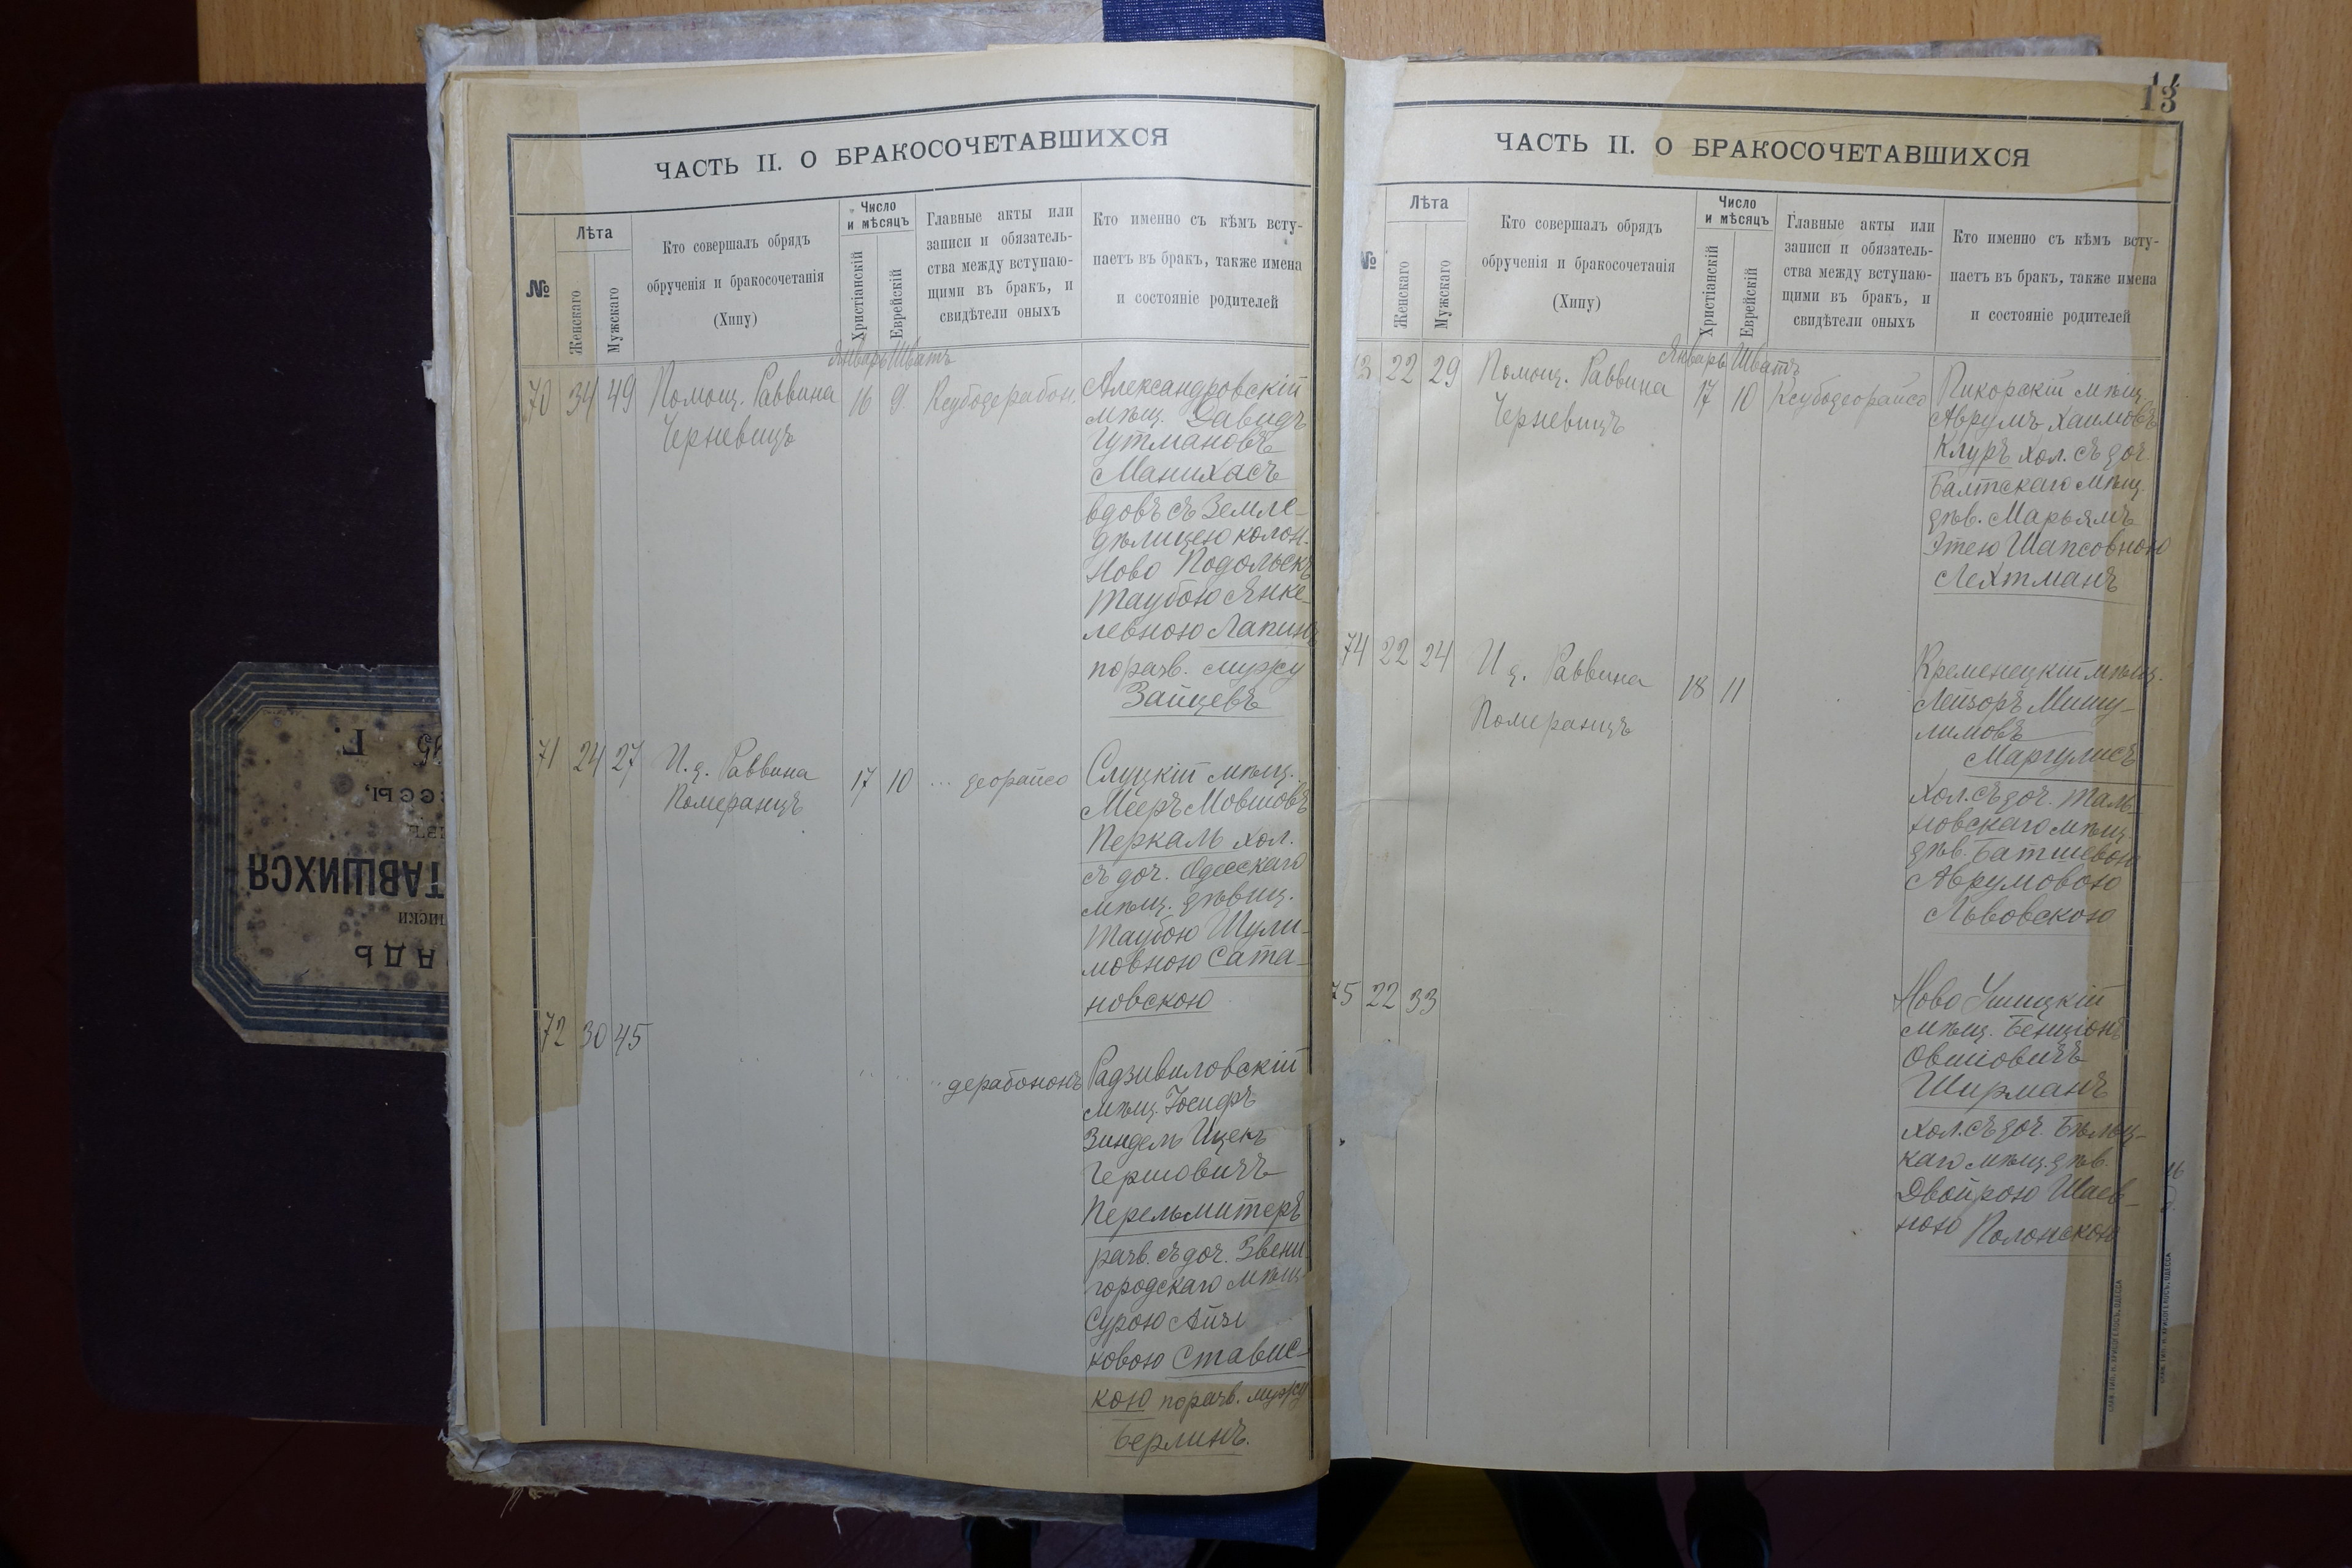 13
ЧАСТЬ II. О БРАКОСОЧЕТАВШИХСЯ
№
Лѣта
Женскаго
Мужскаго
Кто совершалъ обрядъ
обрученія и бракосочетанія
(Хипу)
Число
и мѣсяцъ
Христіанскій
Еврейскій
Главные акты или
записи и обязатель-
ства между вступаю-
щими въ бракъ, и
свидѣтели оныхъ
Кто именно съ кѣмъ всту-
паетъ въ бракъ, также имена
и состояніе родителей
Январь Шватъ
70 34 49 Помощ. Раввина 16 9 Ксубодерабон.
Черневицъ
Александровскій
мѣщ. Давидъ
Гутмановъ
Манихасъ
вдовъ съ Земле-
дѣлицею колон.
Ново Подольскъ
Таубою Янке-
левною Лапинъ
по разв. мужу
Зайцевъ
71 24 27 И. д. Раввина 17 10 ... деорайсо
Померанцъ
Слуцкій мѣщ.
Мееръ Мовшовъ
Перкаль хол.
съ доч. Одесскаго
мѣщ. дѣвиц.
Таубою Шули-
мовною Сата-
новскою
72 30 45
дерабононъ
Радзивиловскій
мѣщ. Іосифъ
Зиндель Ицекъ
Гершовичъ
Перельмитеръ
разв. съ доч. Звени-
городскаго мѣщ.
Сурою Айзи
ковою Ставис-
кою по разв. мужу
Берлинъ.
ЧАСТЬ II. О БРАКОСОЧЕТАВШИХСЯ
№
Лѣта
Женскаго
Мужскаго
Кто совершалъ обрядъ
обрученія и бракосочетанія
(Хипу)
Число
и мѣсяцъ
Христіанскій
Еврейскій
Главные акты или
записи и обязатель-
ства между вступаю-
щими въ бракъ, и
свидѣтели оныхъ
Кто именно съ кѣмъ всту-
паетъ въ бракъ, также имена
и состояніе родителей
Январь Шватъ
3 22 29 Помощ. Раввина 17 10 Ксубодеорайсо
Черневицъ
мѣщ.
Аврумъ Хаимовъ
Клуръ хол. съ доч.
Балтскаго мѣщ.
дѣв. Марьямъ
Этею Шапсовною
Лехтманъ
74 22 24 И д. Раввина 18 11
Померанцъ
Кременецкій мѣщ.
Лейзоръ Мишу-
лимовъ
Маргулисъ
хол. съ доч. Таль-
новскаго мѣщ.
дѣв. Батшевою
Аврумовою
Львовскою
75 22 33
Ново Ушицкій
мѣщ. Бенціонъ
Овшіовичъ
Ширманъ
хол. съ доч. Бѣльц-
каго мѣщ. дѣв.
Двойрою Шаев-
ною Полонскою